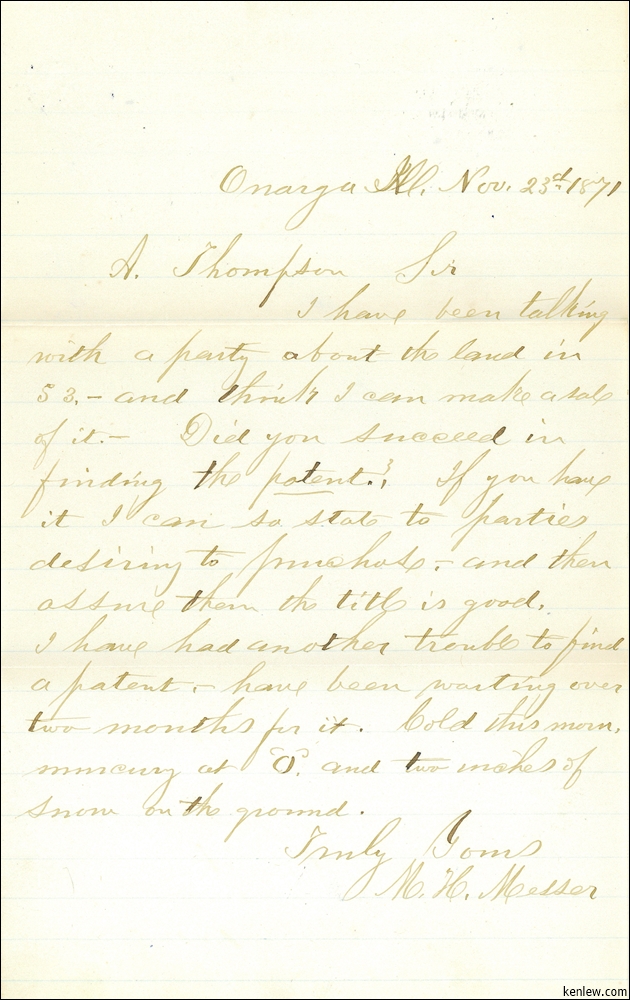 Onarga Ill. Nov. 23rd 1871
A. Thompson Sir
I have been talking
with a party about the land in
53,- and think I can make a sale
of it.- Did you succeed in
finding the patent.? If you have
it I can so state to parties
desiring to purchase,- and then
assure them the title is good.
I have had another trouble to find
a patent,- have been waiting over
two months for it. Cold this morn,
mercury at "0". and two inches of
snow on the ground.
Truly Yours
M. H. Messer
kenlew.com